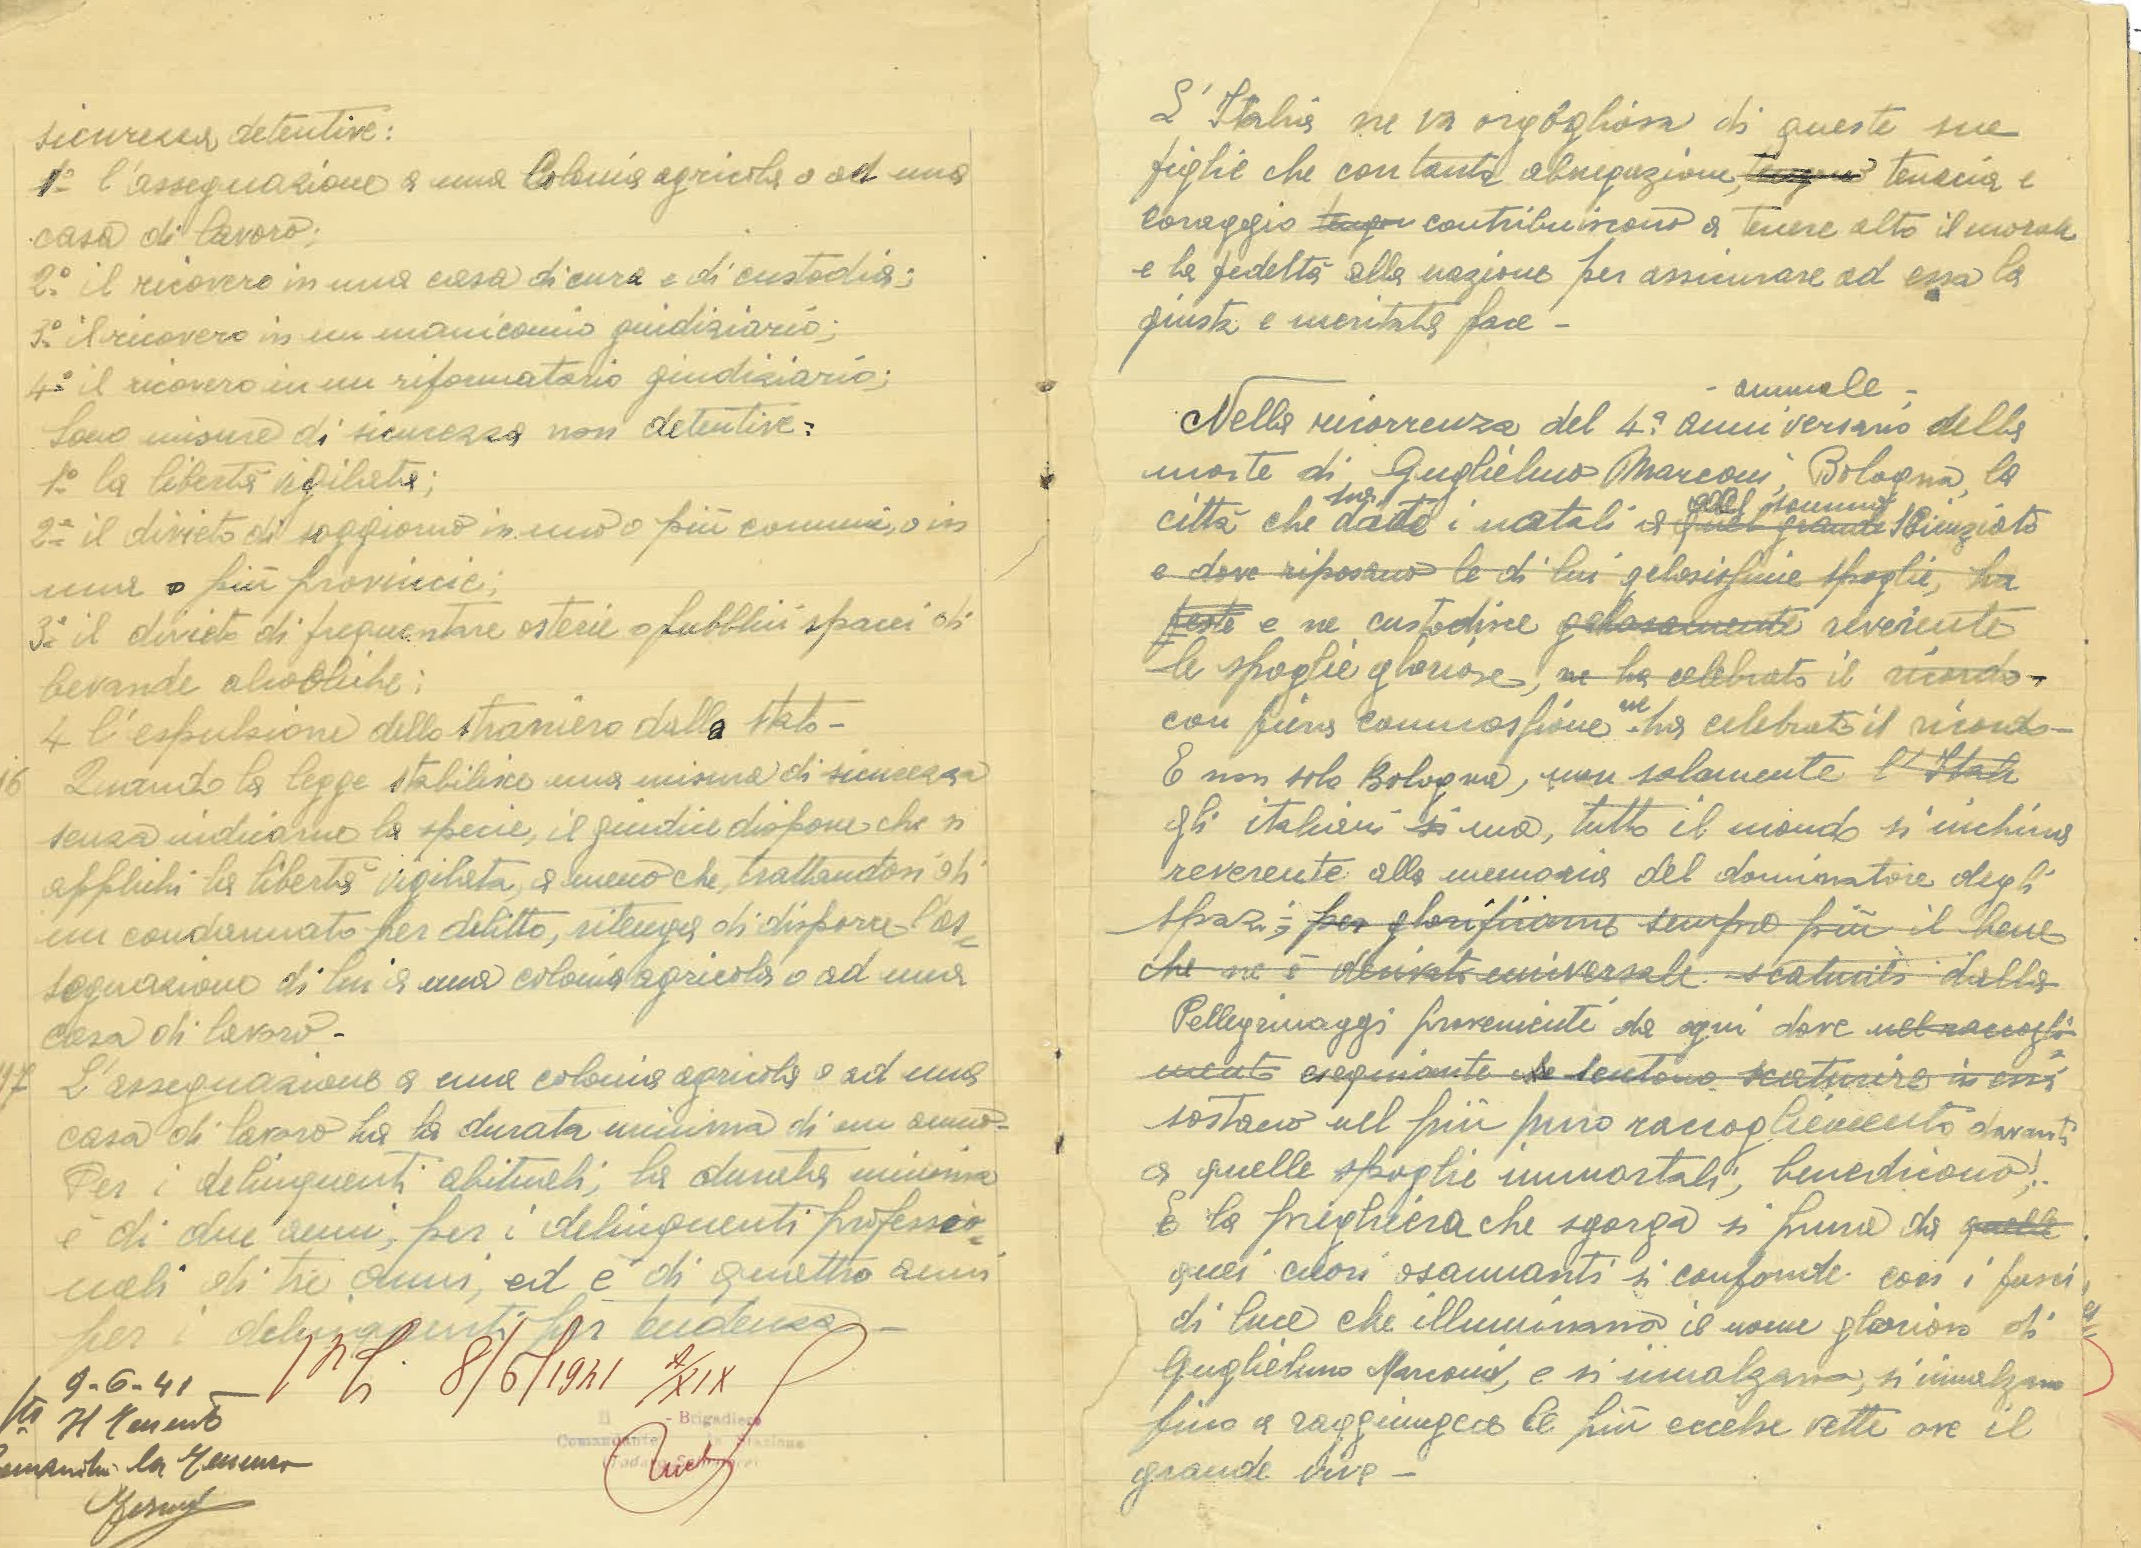 sicurezza detentive:
1º l'assegnazione a una Colonia agricola o ad una
casa di lavoro;
2º il ricovero in una casa di cura e di custodia;
3º il ricovero in un manicomio giudiziario;
4º il ricovero in un riformatorio giudiziario;
Sono misure di sicurezza non detentive:
1º la libertà vigilata;
2º il divieto di soggiorno in uno o più comuni, o in
una o più provincie;
3º il divieto di frequentare osterie o pubblici spacci di
bevande alcooliche;
4 l'espulsione dello straniero dallo stato-
16 Quando la legge stabilisce una misura di sicurezza
senza indicarne la specie, il giudice dispone che si
applichi la libertà vigilata, a meno che, trattandosi di
un condannato per delitto, ritenga di disporre l'as=
segnazione di lui a una colonia agricola o ad una
casa di lavoro-
17 L'assegnazione a una colonia agricola o ad una
casa di lavoro ha la durata minima di un anno-
Per i delinquenti abituali, la durata minima
è di due anni, per i delinquenti professio=
nali di tre anni, ed è di quattro anni
per i delinquenti per tendenza-
8/6/1941 XIX
9-6-41
Il Tenente
la Tenenza
Brigadiere
Comandante la Stazione
L'Italia ne va orgogliosa di queste sue
figlie che con tanta abnegazione, tenacia e
coraggio contribuiscono a tenere alto il morale
e la fedeltà alla nazione per assicurare ad essa la
giusta e meritata pace-
- annuale -
Nella ricorrenza del 4º anniversario della
morte di Guglielmo Marconi, Bologna, la
città che dato i natali a quel grande Scienziato
e dove riposano le di lui gelosissime spoglie, ha
e ne custodisce gelosamente reverente
le spoglie gloriose, ne ha celebrato il ricordo-
con piena commossione ne ha celebrato il ricordo-
E non solo Bologna, non solamente l'Itali
gli italiani si ma, tutto il mondo si inchina
reverente alla memoria del dominatore degli
spazi; per glorificarne sempre più il bene
che ne è derivato universale scaturito dalla
Pellegrinaggi provenienti da ogni dove nel raccogli=
mento sentono scaturire in essi
sostano nel più puro raccoglimento davanti
a quelle spoglie immortali, benedicono!..
E la preghiera che sgorga si pura da quelle
quei cuori osannanti si confonde con i fasci
di luce che illuminano il nome glorioso di
Guglielmo Marconi, e si innalzano, si innalzano
fino a raggiungere le più eccelse vette ove il
grande vive-